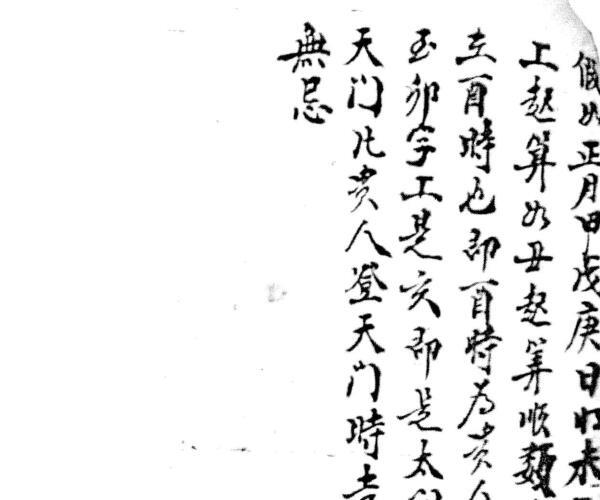 假如正月甲戊庚日將未
上起算如丑起算順數
立酉時也即酉時為貴人
至卯字上是亥即是太
天門此貴人登天門時
無忌